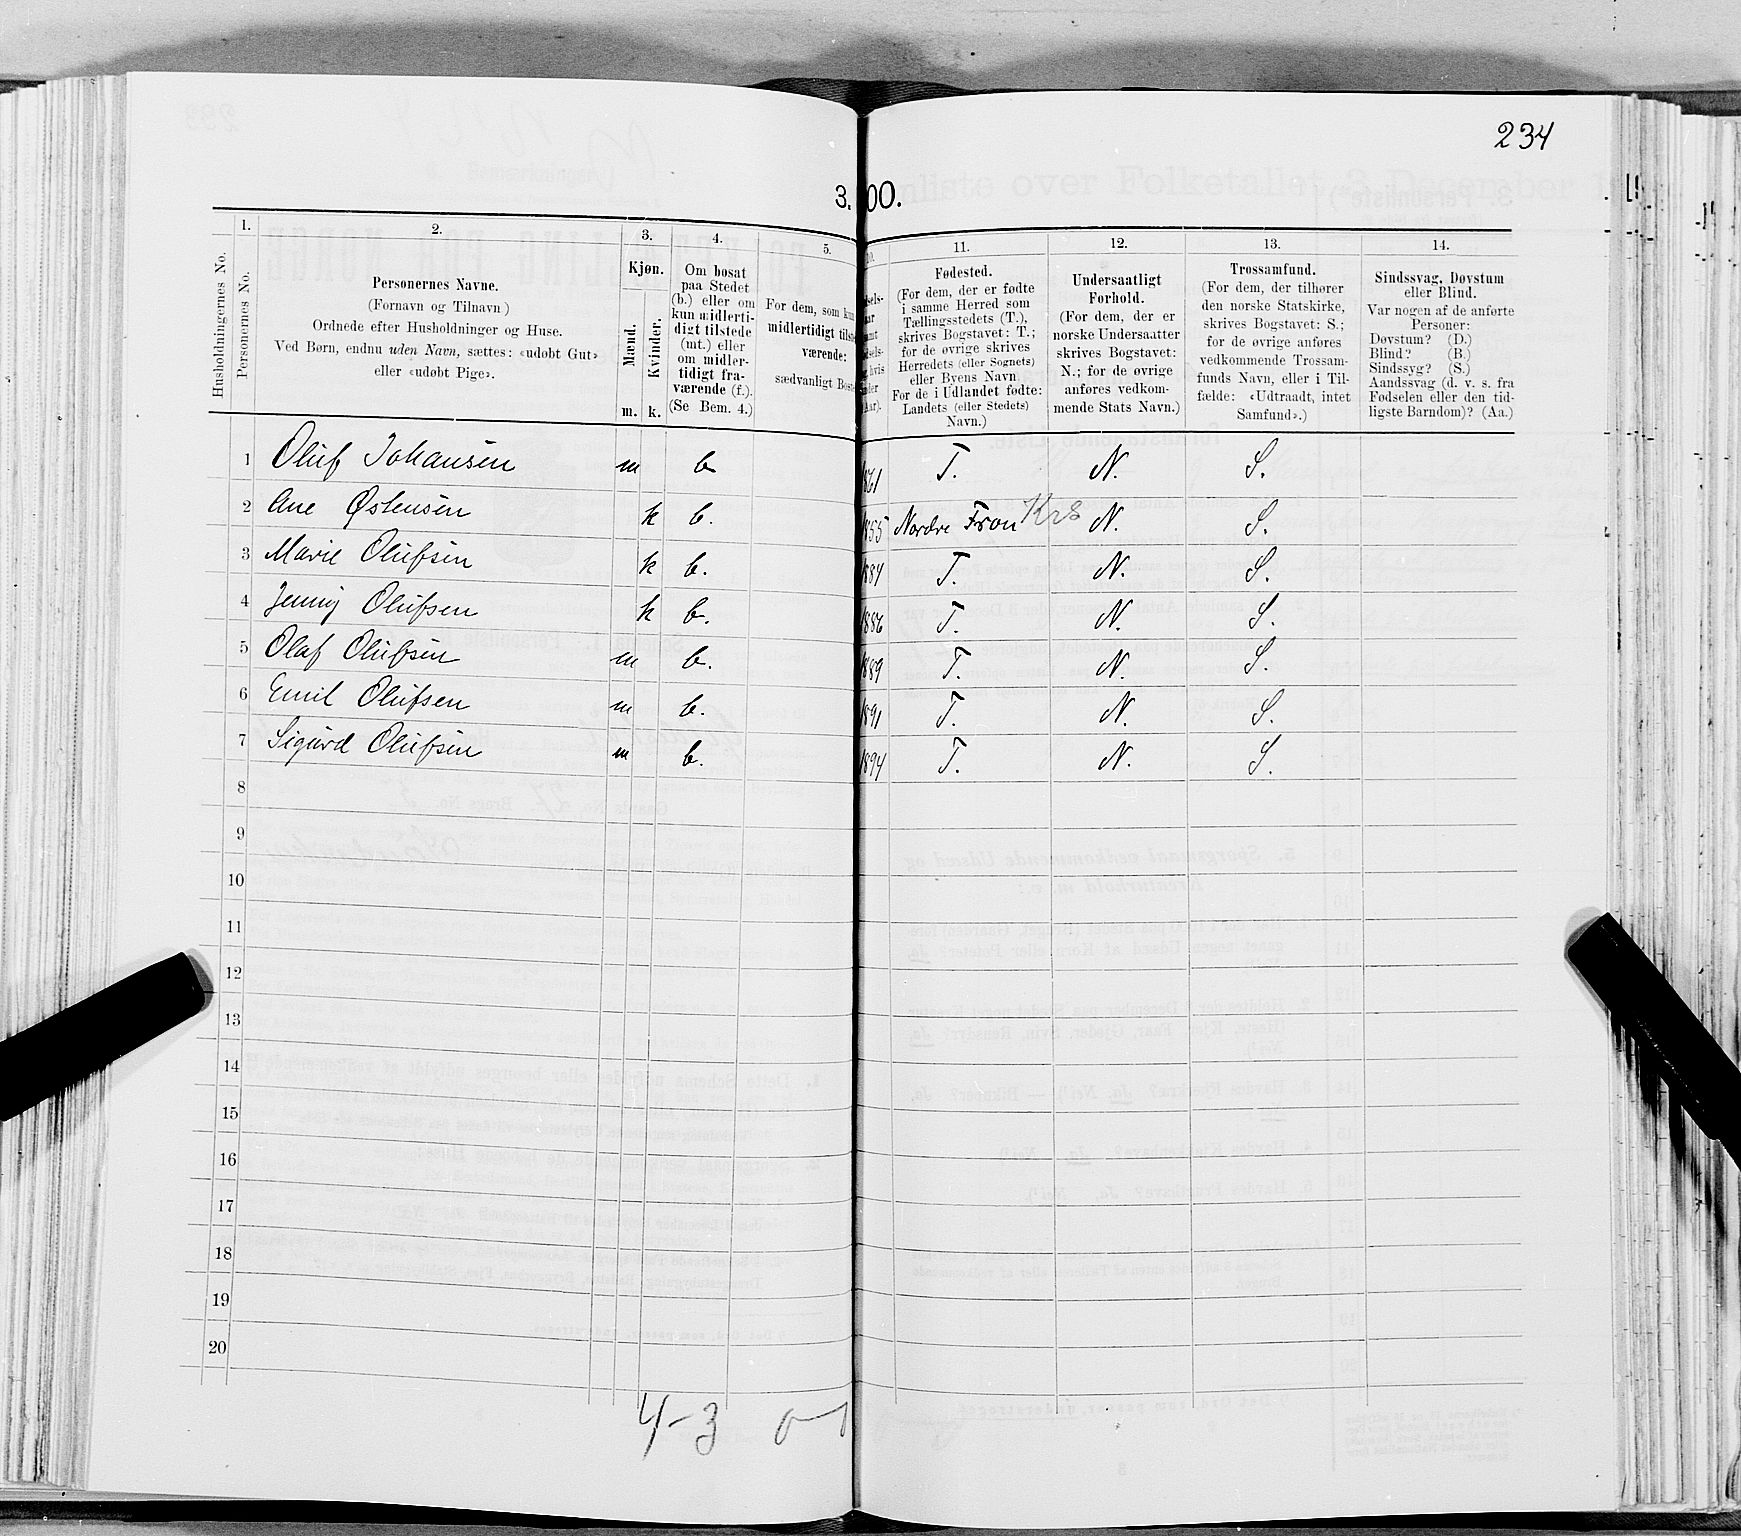 234
3. 00.
1.
2.
3.
4.
5.
11.
12.
13.
14.
Husholdningernes No.
Personernes No.
Personernes Navne.
(Fornavn og Tilnavn)
Ordnede efter Husholdninger og Huse.
Ved Børn, endnu uden Navn, sættes: «udøbt Gut»
eller «udøbt Pige».
Kjøn.
Mænd.
Kvinder.
m. k.
Om bosat
paa Stedet
(b.) eller om
kun midlerti-
digt tilstede
(mt.) eller
om midler-
tidigt fra-
værende (f.).
(Se Bem. 4.)
For dem, som kun
midlertidigt tilste
værende:
sædvanligt Boste
Fødested.
(For dem, der er fødte
i samme Herred som
Tællingsstedets (T.),
skrives Bogstavet: T.;
for de øvrige skrives
Herredets (eller Sognets)
eller Byens Navn
For de i Udlandet fødte:
Landets (eller Stedets)
Navn.)
Undersaatligt
Forhold.
(For dem, der er
norske Undersaatter
skrives Bogstavet:
N.; for de øvrige
anføres vedkom-
mende Stats Navn.)
Trossamfund.
(For dem, der tilhører
den norske Statskirke,
skrives Bogstavet: S.;
for de øvrige anføres
vedkommende Trossam-
funds Navn, eller i Til-
fælde: «Udtraadt, intet
Samfund».)
Sindssvag, Døvstum
eller Blind.
Var nogen af de anførte
Personer:
Døvstum? (D.)
Blind? (B.)
Sindssyg? (S.)
Aandssvag (d. v. s. fra
Fødselen eller den tid-
ligste Barndom)? (Aa.)
1 Oluf Johansen m b 1861 T. N. S.
2 Ane Østensen k b. 1855 Nordre Fron Krs N. S.
3 Marie Olufsen k b. 1884 T. N. S.
4 Jenny Olufsen k b. 1886 T. N. S.
5 Olaf Olufsen m b. 1889 T. N. S.
6 Emil Olufsen m b. 1891 T. N. S.
7 Sigurd Olufsen m b. 1894 T. N. S.
8
9
10
11
12
13
14
15
16
17
18
19
20
4-3